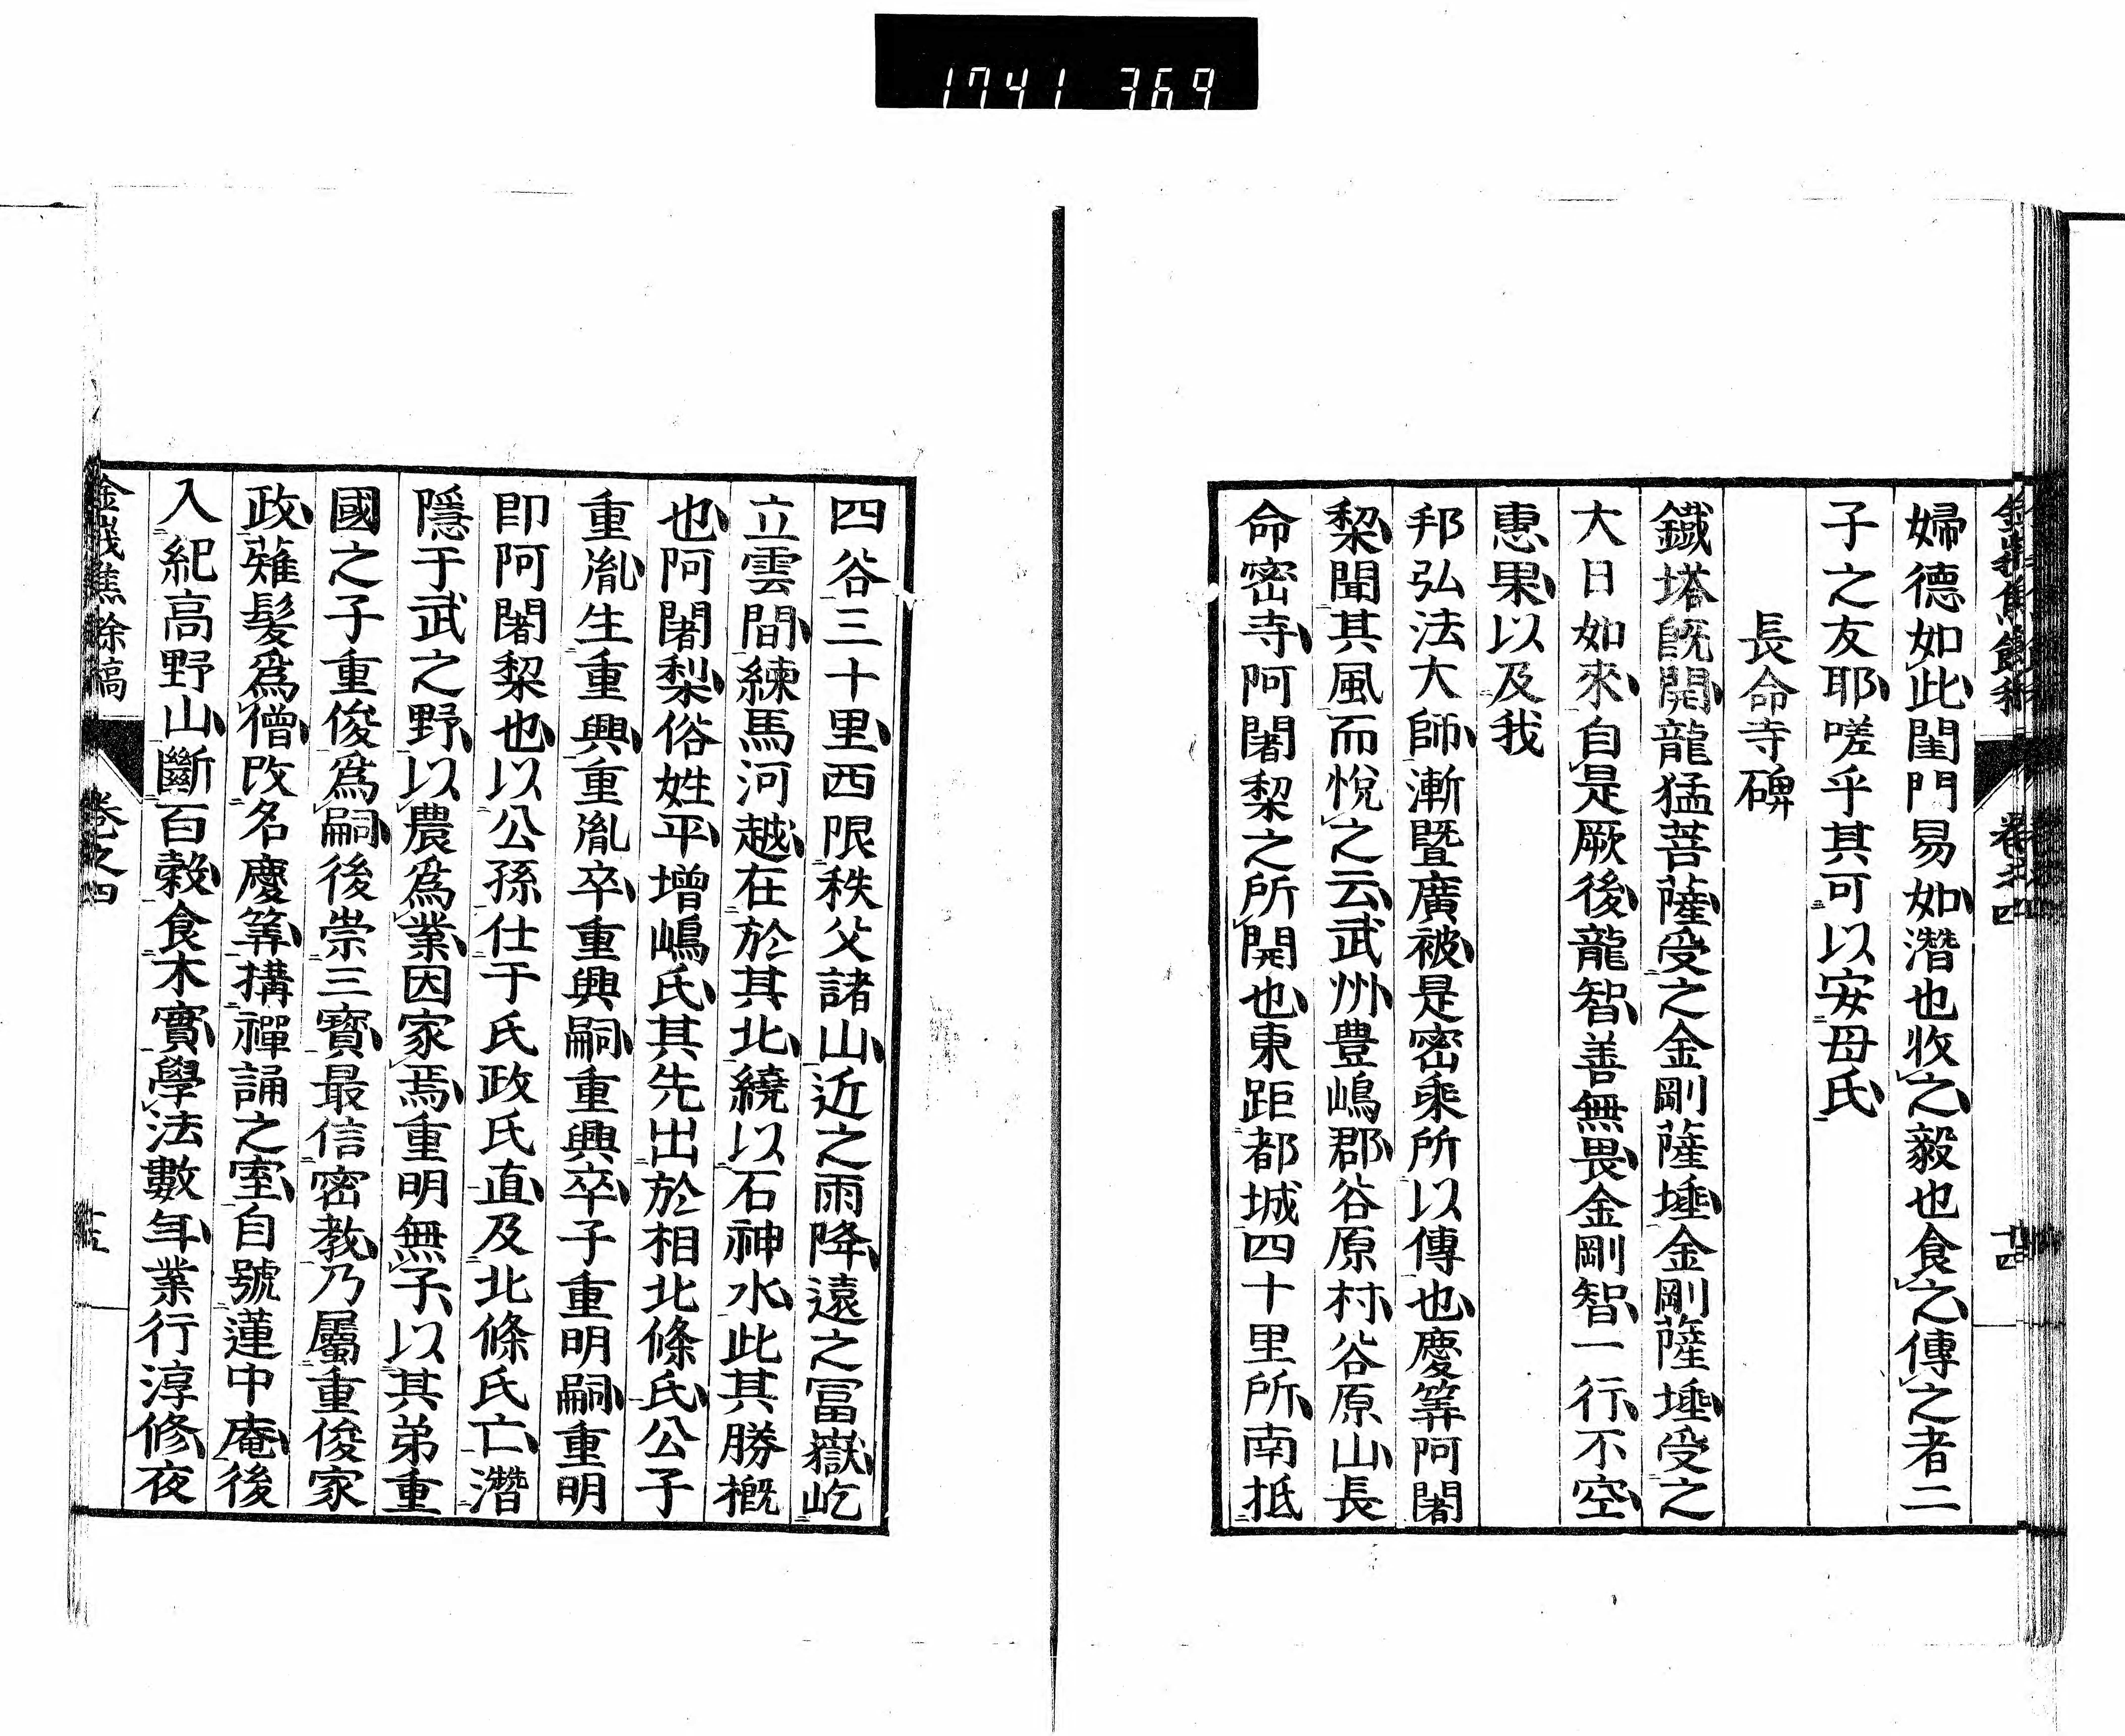 1741 369
婦德如此閨門易如潛也收之毅也食之傳之者二
子之友耶嗟乎其可以安母氏
長命寺碑
鐵塔既開龍猛菩薩受之金剛薩埵金剛薩埵受之
大日如來自是厥後龍智善無畏金剛智一行不空
惠果以及我
邦弘法大師漸暨廣被是密乘所以傳也慶筭阿闍
梨聞其風而悅之云武州豊嶋郡谷原村谷原山長
命密寺阿闍梨之所開也東距都城四十里所南抵
四谷三十里西限秩父諸山近之雨降遠之冨嶽屹
立雲間練馬河越在於其北繞以石神水此其勝概
也阿闍梨俗姓平增嶋氏其先出於相北條氏公子
重胤生重興重胤卒重興嗣重興卒子重明嗣重明
即阿闍梨也以公孫仕于氏政氏直及北條氏亡潛
隱于武之野以農爲業因家焉重明無子以其弟重
國之子重俊爲嗣後崇三寳最信密教乃屬重俊家
政薙髮爲僧改名慶筭搆禪誦之室自號蓮中庵後
入紀高野山斷百穀食木實學法數年業行淳修夜
金峩焦餘稿 卷之四